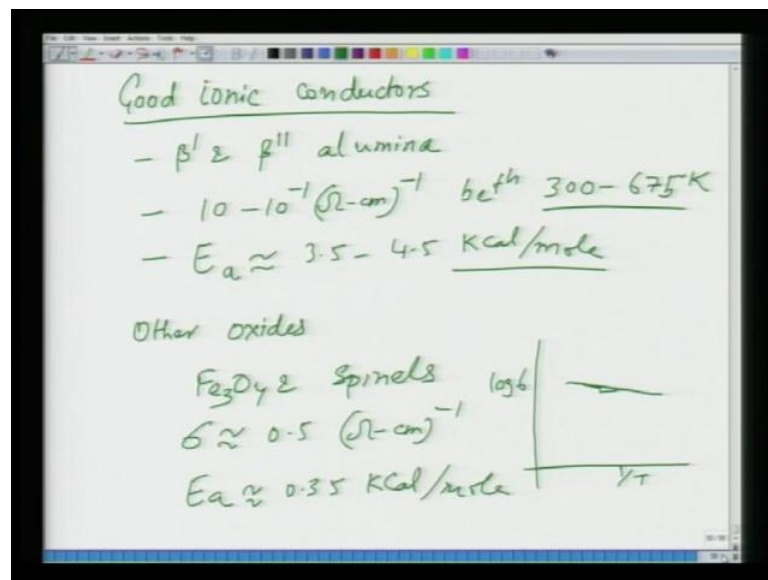 Good ionic conductors
- β' & β'' alumina
- 10 - 10⁻¹ (Ω-cm)⁻¹ betⁿ 300 - 675 K
- Ea ≈ 3.5 - 4.5 KCal/mole
Other oxides
Fe3O4 & Spinels
σ ≈ 0.5 (Ω-cm)⁻¹
Ea ≈ 0.35 KCal/mole
log σ
1/T